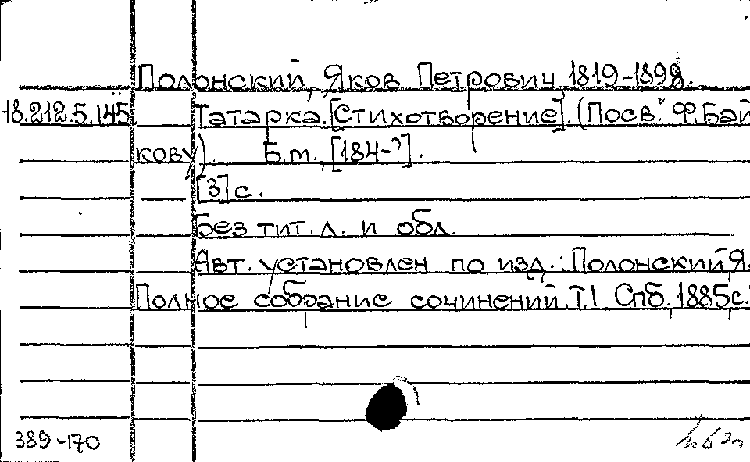 Полонский, Яков Петрович, 1819-1898.
18.212.5.145 Татарка. [Стихотворение]. (Посв. Ф. Бай
кову). Б.м., [184-?].
[3] с.
Без тит. л. и обл.
Авт. установлен по изд.: Полонский, Я.
Полное собрание сочинений. Т.1 Спб. 1885 с.
389-170